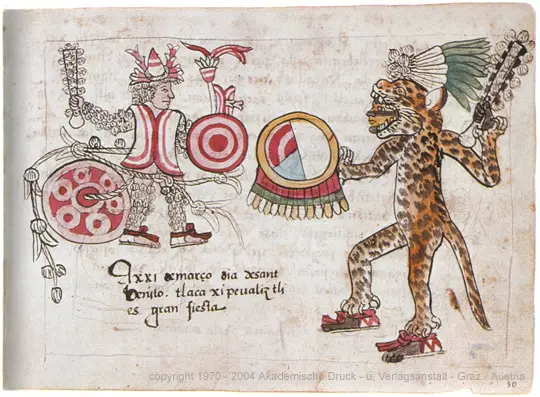 A xxi de março dia de sant
benito. tlaca xi pevaliztli
es gran fiesta
copyright 1970 - 2004 Akademische Druck - u. Verlagsanstalt - Graz - Austria
30